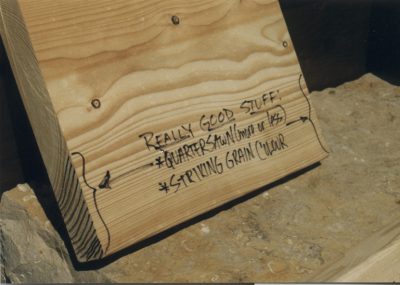 REALLY GOOD STUFF!
*QUARTERSAWN (more or less)
*STRIKING GRAIN COLOUR